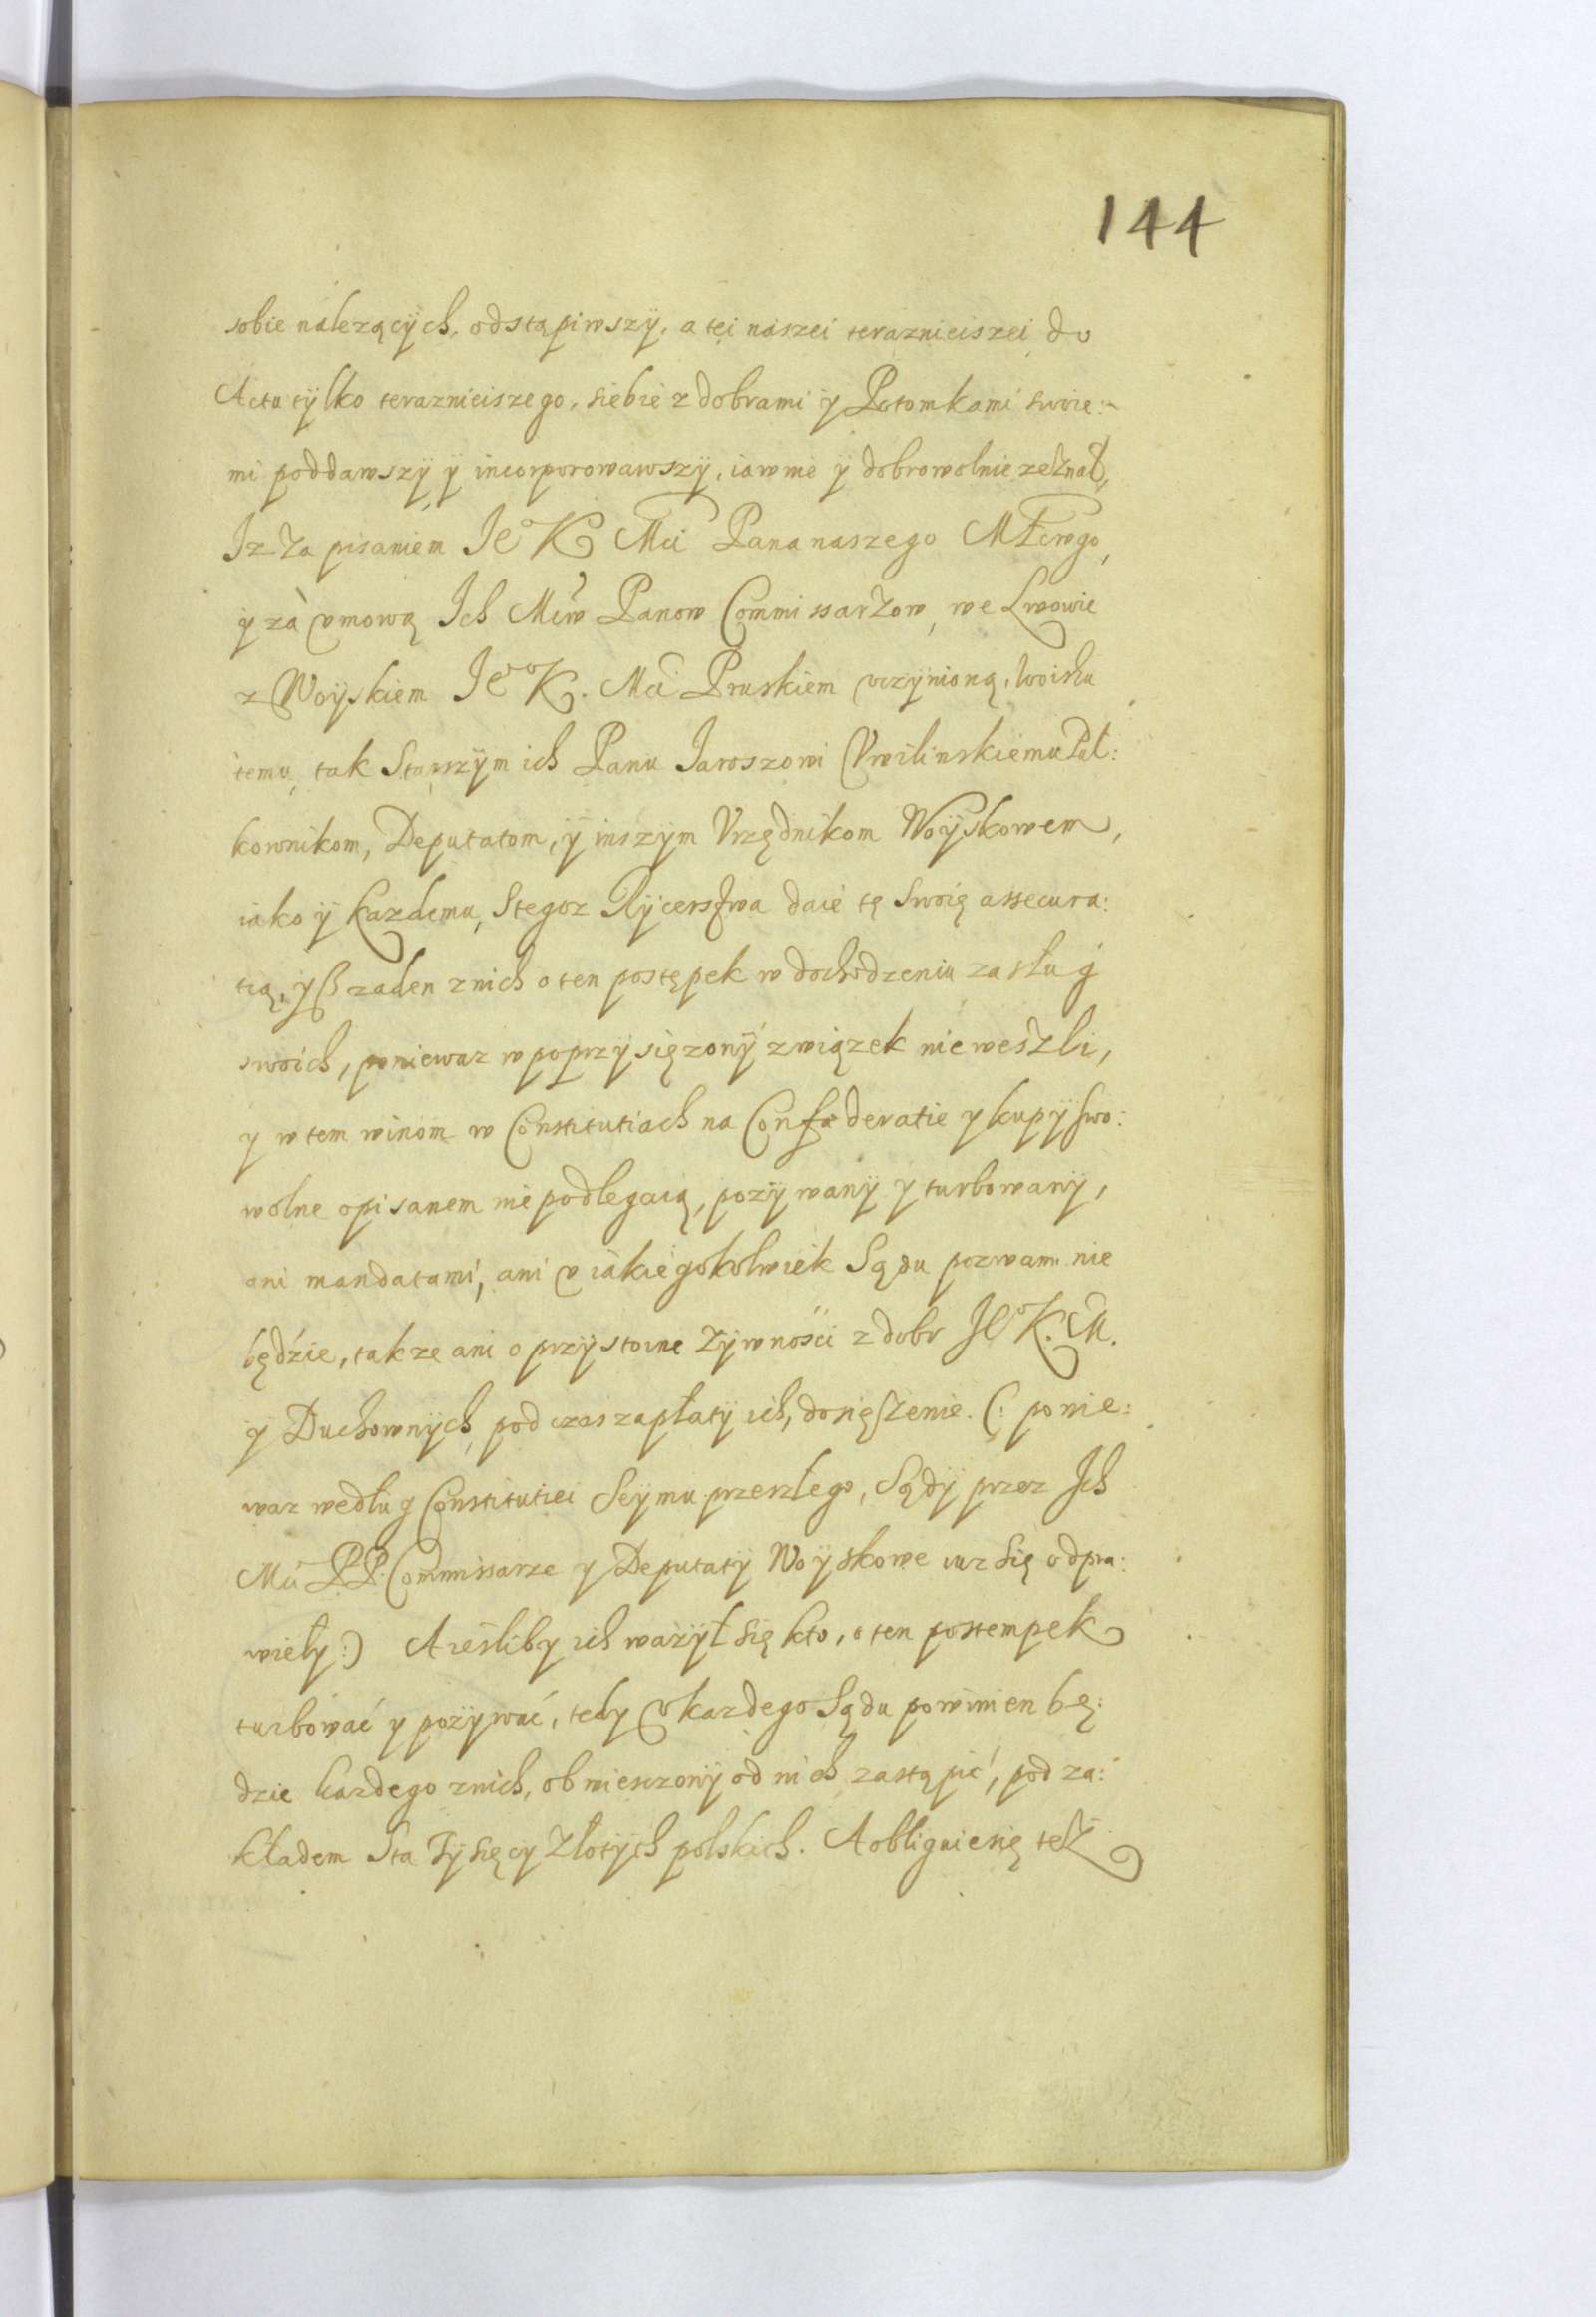 144
sobie należących, odstąpiwszÿ, a tei naszei terazniciszei do
Actu tÿlko terazniciszego, siebie z dobrami ÿ Potomkami swoie:
mi poddawszÿ ÿ incorporowawszÿ, iawnie ÿ dobrowolnie zeznał,
Iz za pisaniem Je° K Mci Pana naszego Młcwgo,
ÿ zà vmową Ich Mciw Panow Commissarzow, we Lwowie
z Woÿskiem Je° K. Mci Pruskiem vczÿnioną, woisku
temu, tak Starszÿm ich Panu Jaroszowi Vwilinskiemu Puł:
kownikom, Deputatom, ÿ inszÿm Vrzędnikom Woÿskowem,
iako ÿ kazdemu, Stegoz Rÿcerstwa daie tę swoię assecura:
tią, yß zaden z nich o ten postępek w dochodzeniu zasług
swoich, poniewaz w poprzÿsięzonÿ związek nie weszli,
y w tem winom w Constitutiach na Confœderatie y kupÿ swo:
wolne opisanem nie podlegaią, pozÿwanÿ y turbowanÿ,
ani mandatami, ani v iakiegokolwiek Sądu pozwani nie
będzie, takze ani o przÿstoine zÿwności z dobr Je° K. M.
ÿ Duchownÿch, pod czas zapłatÿ ich, dosięszenie. (: ponie:
waz według Constitutiei Seÿmu przeszłego, Sądÿ przez Ich
Mci PP. Commissarze y Deputatÿ Woÿskowe iuz się odpra:
wieły:) A ieśliby ich wazÿł się kto, o ten postempek
turbować y pozÿwać, tedy v kazdego Sądu powinien bę:
dzie kazdego z nich, obwiesczonÿ od nich zastąpić, pod za:
kładem Sta Tysięcy Złotÿch polskich. A obliguie się tesz